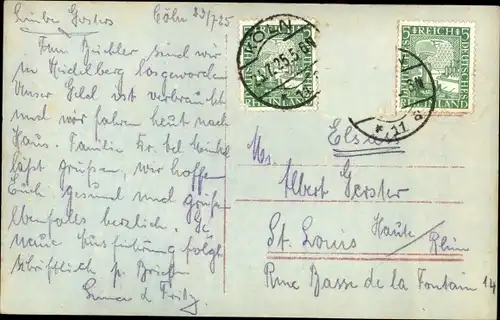 Liebe Gerster Cöln 23/7 25
Frau Bichler sind wir
in Heidelberg losgeworden
Unser Geld ist verbraucht
und wir fahren heute nach
Haus. Familie Fr.
läßt grüßen, wir hoffen
Euch gesund und grüßen
ebenfalls herzlich. Ge
naue Ausführung folgt
schriftlich p. Brief
Fritz
KÖLN
23.7.25.5-6N
5 REICH 5
DEUTSCHES
RHEINLAND
5 REICH 5
DEUTSCHES
RHEINLAND
Elsaß
Ms.
Albert Gerster
St. Louis Haute/
Rhin
Rue Basse de la Fontain 14